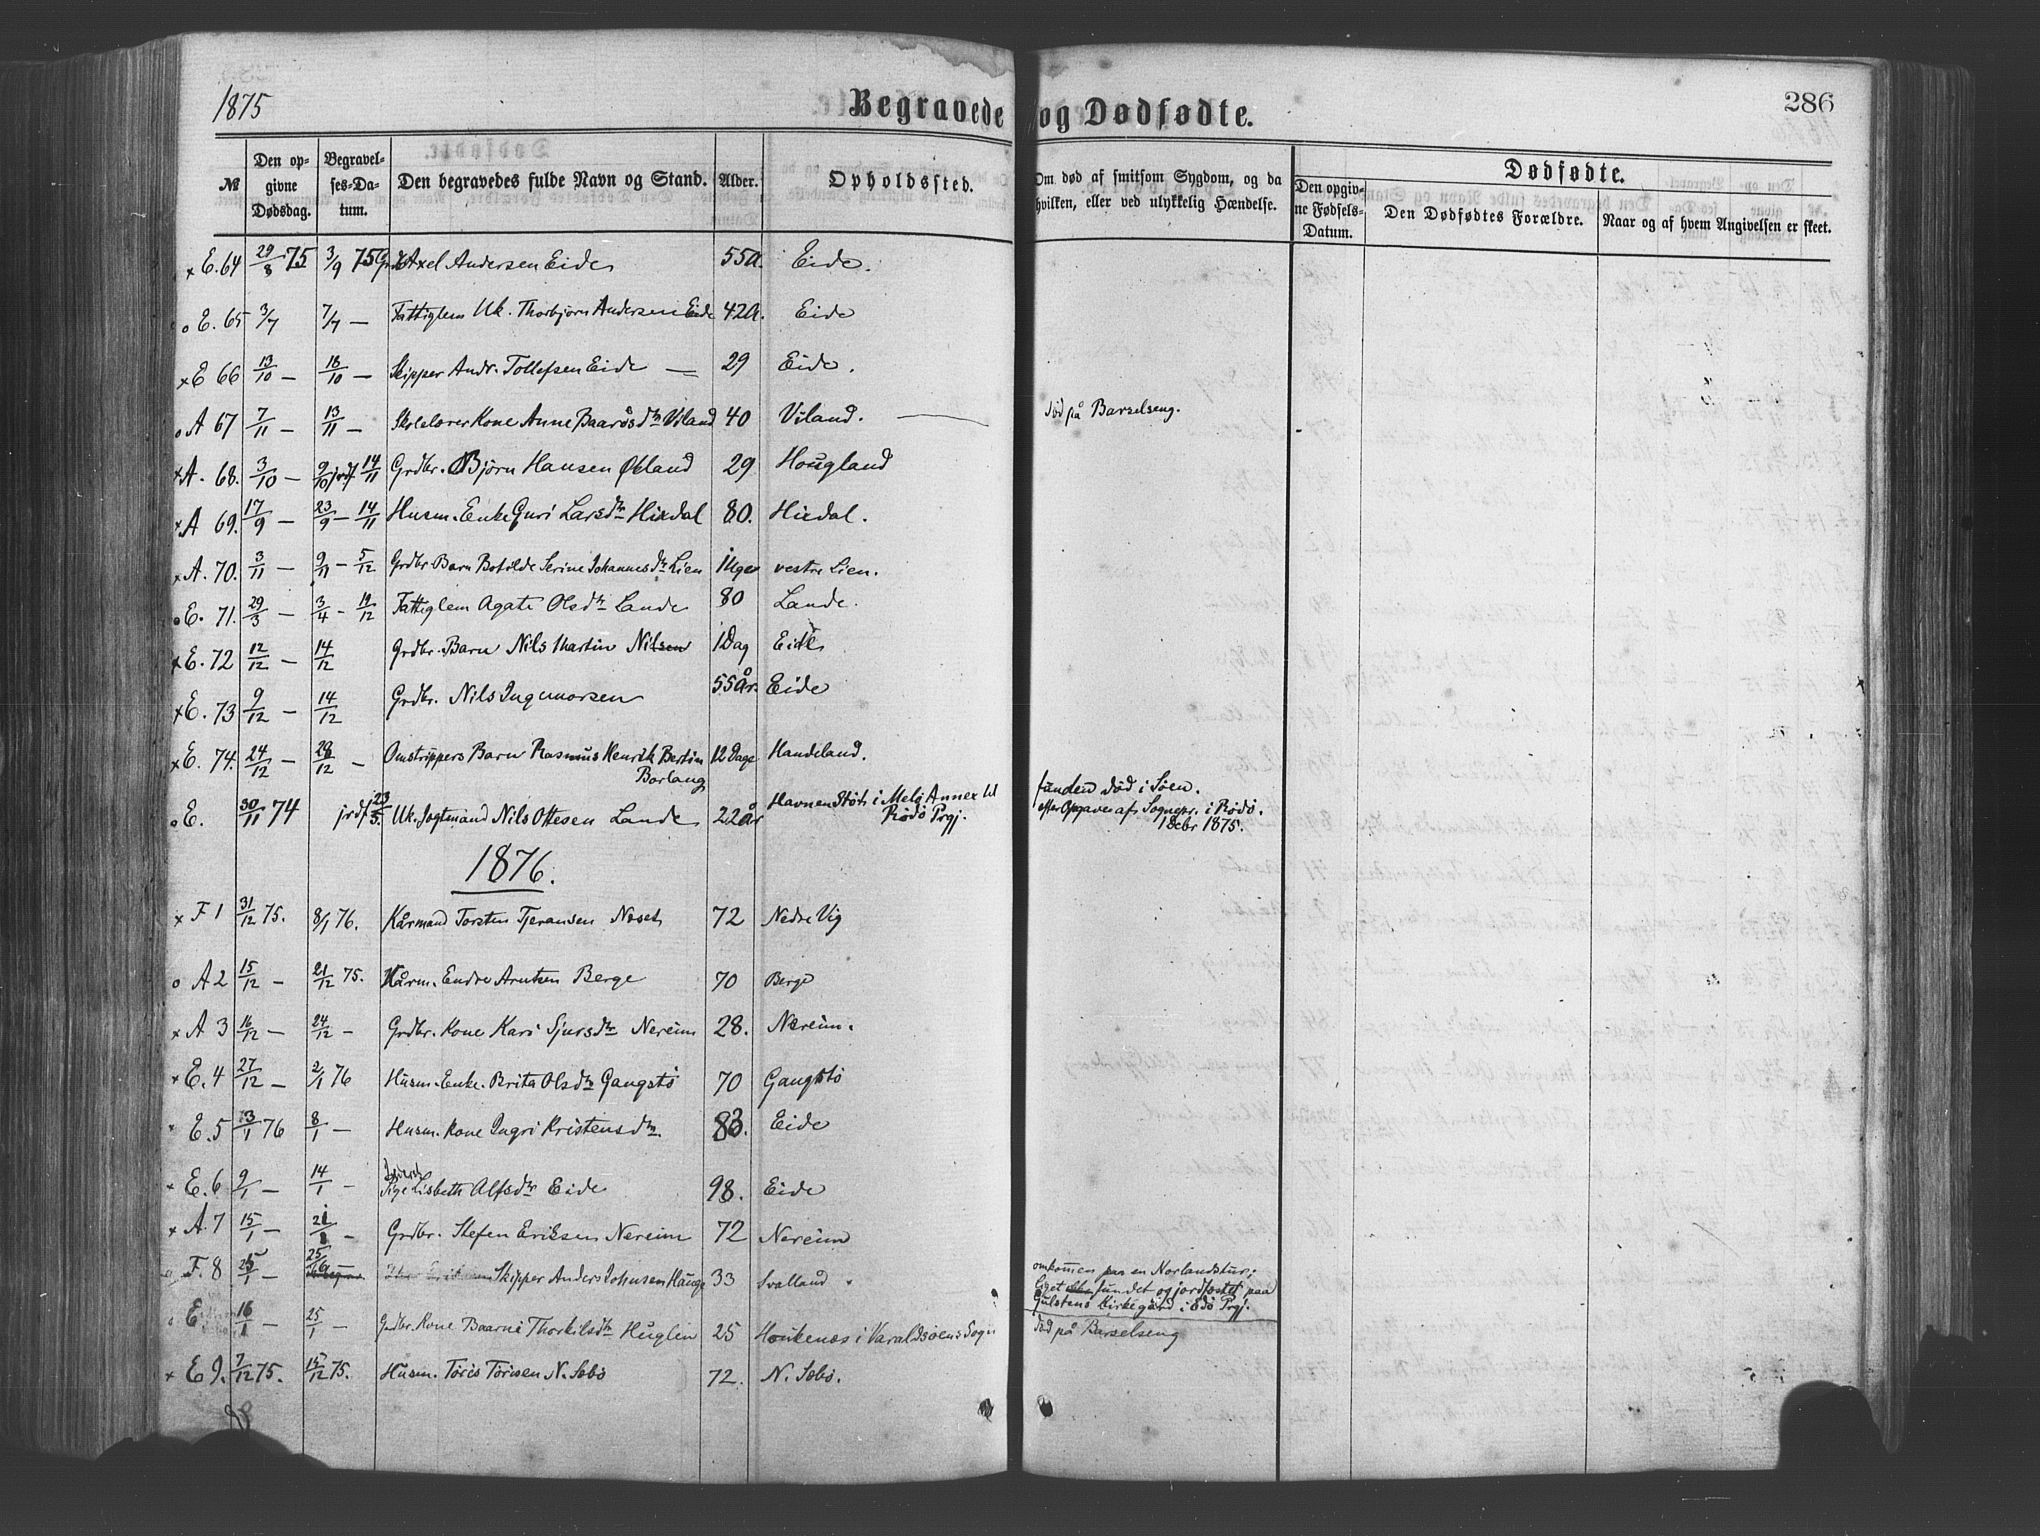 1875
Begravede og Dødfødte.
286
№
Den opgivne Dødsdag.
Begravelses-Datum.
Den begravedes fulde Navn og Stand.
Alder.
Opholdssted.
Om død af smitsom Sygdom, og da hvilken, eller ved ulykkelig Hændelse.
Dødfødte.
Den opgivne Fødsels-Datum.
Den Dødfødtes Forældre.
Naar og af hvem Angivelsen er skeet.
x E. 64 29/8 75 3/9 75 Axel Andersen Eide 55 A. Eide.
o E. 65 3/7 7/7 — Fattiglem Uk. Thorbjørn Andersen Eide 42 A. Eide
x E 66 13/10 — 18/10 — Skipper Andr. Tollefsen Eide — 29 Eide.
o A 67 7/11 — 13/11 — Skolelærer Kone Anne Baarsdtr Viland 40 Viland. — død på Barselseng.
x A. 68. 3/10 — 9/10 jrdf 14/11 Grdbr. Bjørn Hansen Økland 29 Hougland
x A 69. 17/9 — 23/9 — 14/11 Husm. Enke Guri Larsdtr Hisdal 80. Hisdal.
x A. 70. 3/11 — 9/11 — 5/12 Grdbr Barn Botilde Serine Johannesdtr Lien 1 Uge vestre Lien.
o E. 71. 29/3 — 3/4 - 19/12 Fattiglem Agate Olsdtr Lande 80 Lande.
x E. 72 12/12 — 14/12 Grdbr. Barn Nils Martin Nilsen 1 Dag Eide
x E. 73 9/12 — 14/12 Grdbr. Nils Ingemorsen 55 År. Eide
x E. 74. 24/12 — 28/12 — Omstrippers Barn Rasmus Henrik Bertin 12 Dage Handeland.
Borlaug
o E. 30/11 74 jrdf 23/5. Uk. Jogtmand Nils Ottesen Lande 22 År Havnen Støt i Melø Annex til Rødø Prgj. funden død i Søen.
efter Opgave af Sognepr. i Rødø.
1 Febr 1875.
1876.
x F 1 31/12 75. 8/1 76. Kårmand Torsten Tjeransen Næset 72 Nedre Vig
o A 2 15/12 — 21/12 75. Kårm. Endre Arntsen Berge 70 Berge
x A 3 16/12 — 24/12 — Grdbr. Kone Kari Sjursdtr Nereim 28. Nereim.
x E. 4 27/12 — 2/1 76 Husm. Enke. Brita Olsdtr Gangstø 70 Gangstø
x E. 5 3/1 76 8/1 — Husm. Kone Ingri Kristensdtr 83. Eide
x E. 6 9/1 — 14/1 — Pige Lisbeth Alfsdtr Eide 98. Eide
x A. 7 15/1 — 21/1 — Grdbr. Stefen Eriksen Nereim 72 Nereim
F. 8 25/1 — 25/10 — Skipper Anders Johnsen Hauge 33 Svalland. omkommen paa en Norlandstur;
Liget fundet og jordfæstet paa
Gulstens Kirkegård i Bdø Prgj.
o E 16/1 — 25/1 — Grdbr. Kone Baarni Thorkilsdtr Huglen 25 Houkenæs i Varaldsøens Sogn død på Barselseng
x E 9. 7/12 75. 15/12 75. Husm. Tøris Tørisen N. Sæbø 72. N. Sæbø.